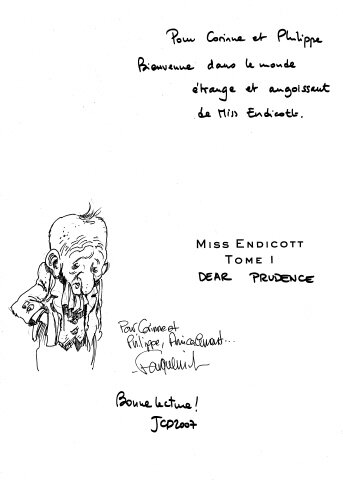 Pour Corinne et Philippe
Bienvenue dans le monde
étrange et angoissant
de Miss Endicott.
MISS ENDICOTT
TOME I
DEAR PRUDENCE
Pour Corinne et
Philippe, Amicalement...
Bonne lecture !
JCD2007